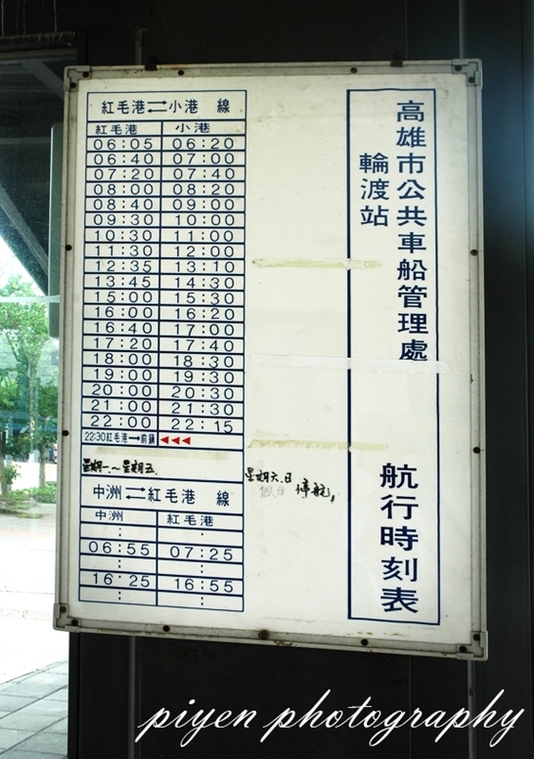 高雄市公共車船管理處
輪渡站
航行時刻表
紅毛港⇄小港 線
紅毛港 小港
06:05 06:20
06:40 07:00
07:20 07:40
08:00 08:20
08:40 09:00
09:30 10:00
10:30 11:00
11:30 12:00
12:35 13:10
13:45 14:30
15:00 15:30
16:00 16:20
16:40 17:00
17:20 17:40
18:00 18:30
19:00 19:30
20:00 20:30
21:00 21:30
22:00 22:15
22:30紅毛港→前鎮 ◀◀◀
星期一~星期五
星期六.日
假日 停航,
中洲⇄紅毛港 線
中洲 紅毛港
: :
06:55 07:25
: :
16:25 16:55
: :
piyen photography